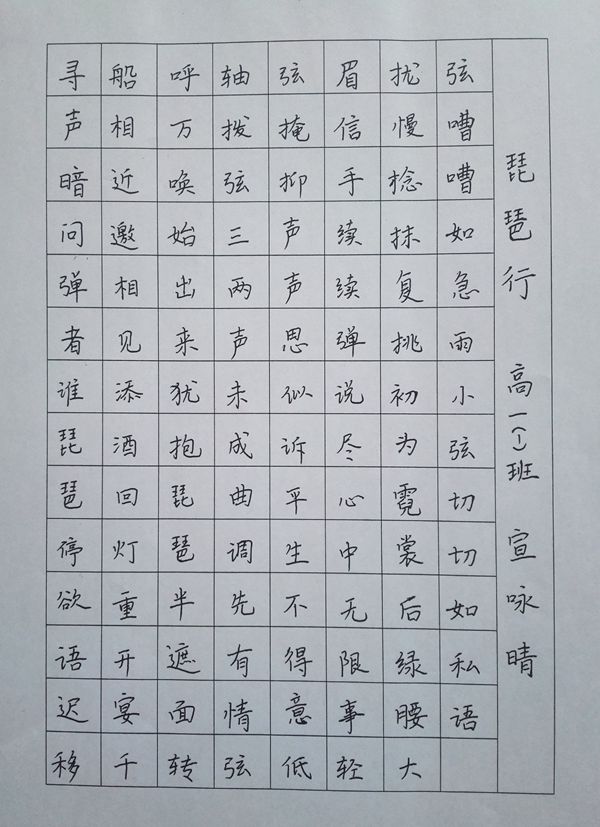 琵琶行 高一(1)班 宣咏晴
寻声暗问弹者谁琵琶停欲语迟移
船相近邀相见添酒回灯重开宴千
呼万唤始出来犹抱琵琶半遮面转
轴拨弦三两声未成曲调先有情弦
弦掩抑声声思似诉平生不得意低
眉信手续续弹说尽心中无限事轻
扰慢捻抹复挑初为霓裳后绿腰大
弦嘈嘈如急雨小弦切切如私语